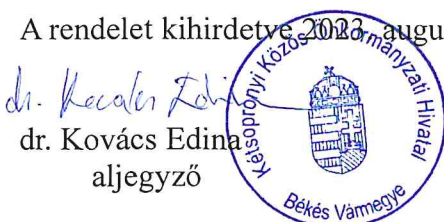 A rendelet kihirdetve 2023. augu
dr. Kovács Edina
dr. Kovács Edina
aljegyző
Kétsopronyi Közös Önkormányzati Hivatal
Békés Vármegye